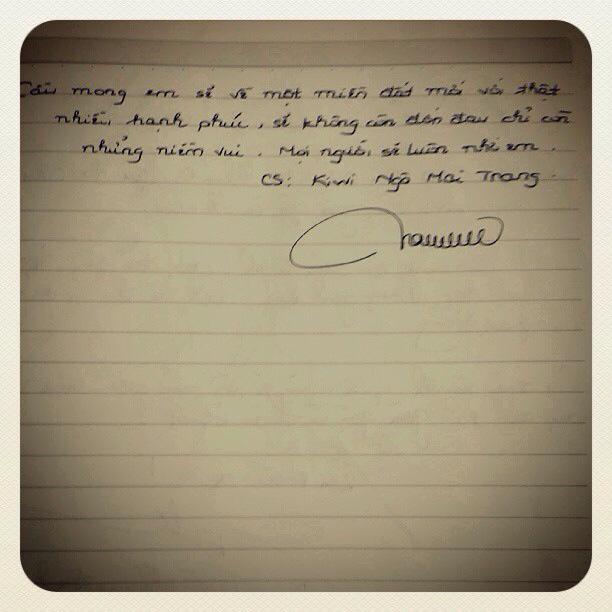 Cầu mong em sẽ về một miền đất mới với thật
nhiều hạnh phúc, sẽ không còn đớn đau chỉ còn
những niềm vui. Mọi người sẽ luôn nhớ em.
CS: Kiwi Ngô Mai Trang